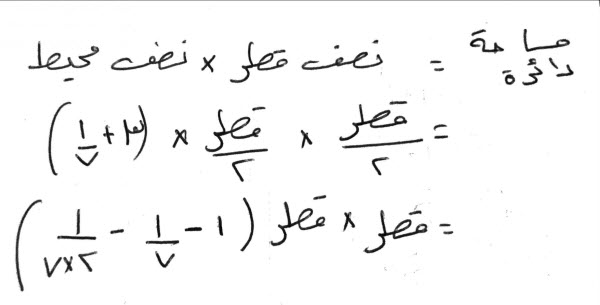 مساحة دائرة = نصف قطر × نصف محيط
= قطر/٢ × قطر/٢ × (٣ + ١/٧)
= قطر × قطر (١ - ١/٧ - ١/٢×٧)